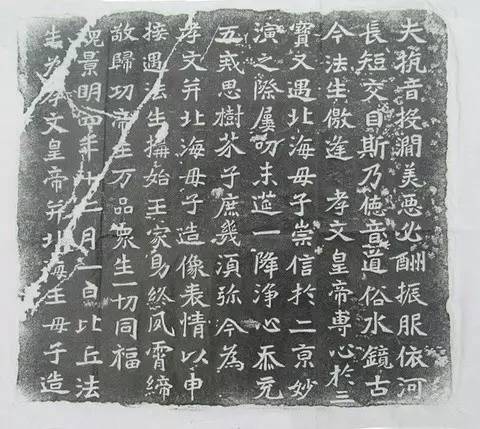 夫抗音投澗美惡必酬振服依河
長短交目斯乃德音道俗水鏡古
今法生儌逢 孝文皇帝專心於三
寶又遇北海母子崇信於二京妙
演之際屢叨末筵一降淨心忝充
五戒思樹芥子庶幾須弥今為
孝文并北海母子造像表情以申
接遇法生構始王家助終夙霄締
敬歸功帝主万品眾生一切同福
魏景明四年十二月一日比丘法
生為孝文皇帝并北海王母子造